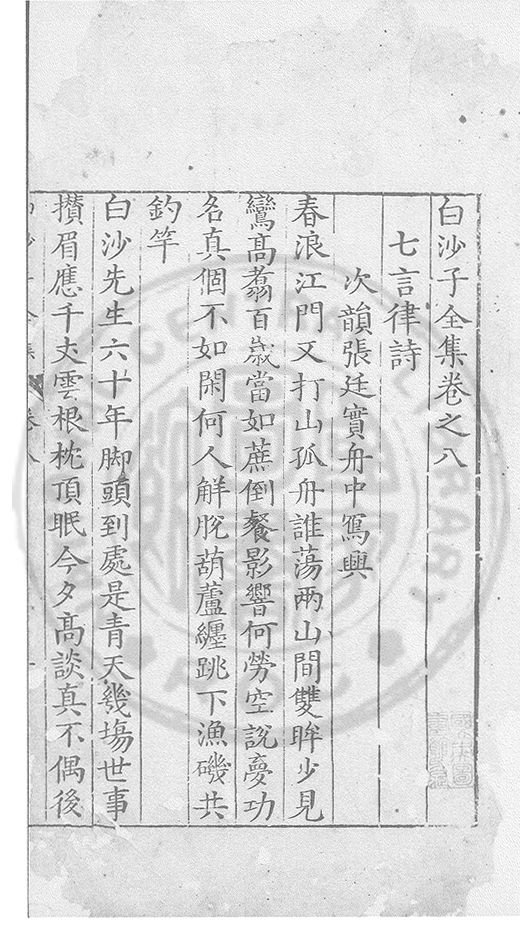 白沙子全集卷之八
七言律詩
次韻張廷實舟中寫興
春浪江門又打山孤舟誰蕩兩山間雙眸少見
鸞高翥百歲當如蔗倒餐影響何勞空説夢功
名真個不如閑何人觧脫葫蘆纏跳下漁磯共
釣竿
白沙先生六十年脚頭到處是青天幾塲世事
攢眉應千丈雲根枕頂眠今夕髙談真不偶後